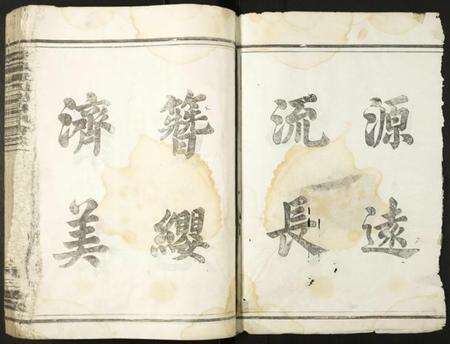 源遠
流長
簪纓
濟美